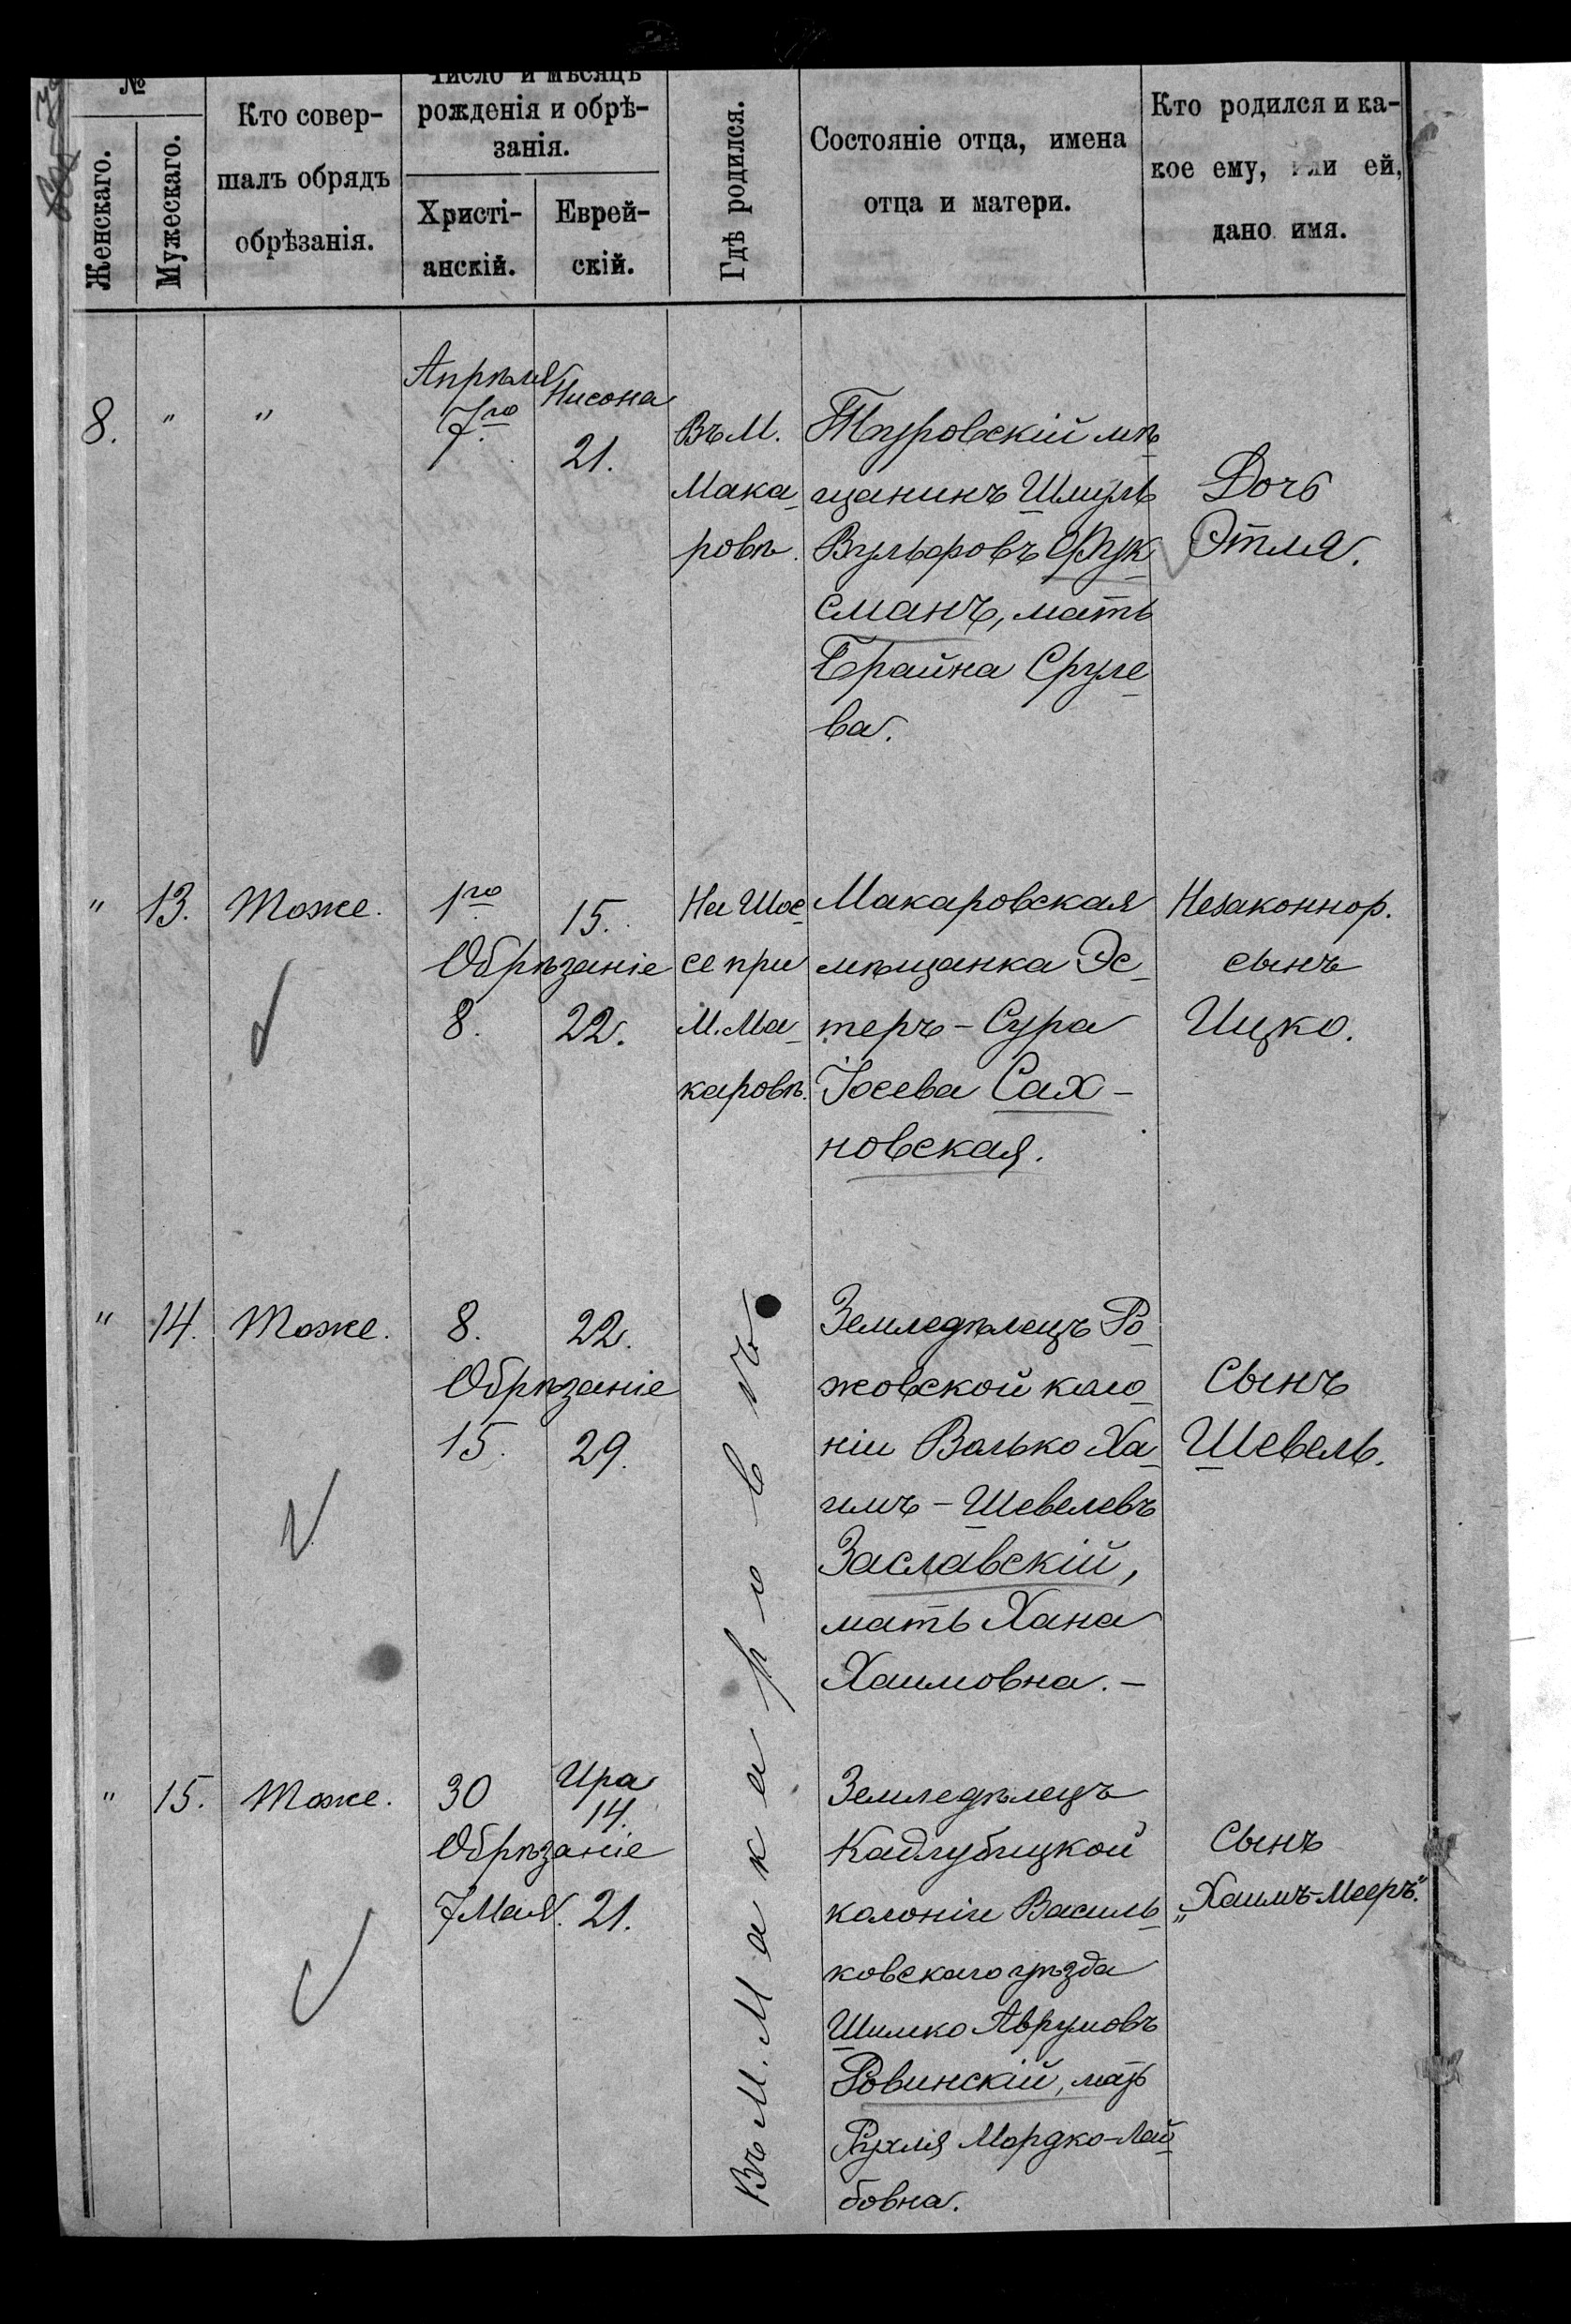 №
Женскаго.
Мужескаго.
Кто совер-
шалъ обрядъ
обрѣзанія.
Число и мѣсяцъ
рожденія и обрѣ-
занія.
Христі-
анскій.
Еврей-
скій.
Гдѣ родился.
Состояніе отца, имена
отца и матери.
Кто родился и ка-
кое ему, или ей,
дано имя.
8.
"
"
Апрѣля
7го
Нисона
21.
Въ М.
Мака-
ровѣ.
Туровскій мѣ-
щанинъ Шмуль
Вульфовъ Фук-
сманъ, мать
Брайна Сруле-
ва.
Дочь
Этля.
"
13.
Тоже.
1го
15.
Обрѣзаніе
8.
22.
На Шос-
се при
М. Ма-
каровѣ.
Макаровская
мѣщанка Эс-
теръ-Сура
Іосева Сах-
новская.
Незаконнор.
сынъ
Ицко.
"
14.
Тоже.
8.
22.
Обрѣзаніе
15.
29.
Въ М. Макаровѣ
Земледѣлецъ Ро-
жовской коло-
ніи Волько Ха-
имъ-Шевелевъ
Заславскій,
мать Хана
Хаимовна.-
Сынъ
Шевель.
"
15.
Тоже.
30
Ира
14.
Обрѣзаніе
7 Мая.
21.
Земледѣлецъ
Кадлубицкой
колоніи Василь-
ковскаго уѣзда
Шимко Аврумовъ
Ровинскій, мать
Рухля Мордко-Лей-
бовна.
Сынъ
„Хаимъ-Мееръ."